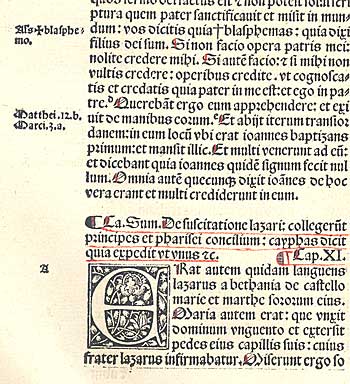 quem pater sanctificauit et misit in mun-
dum: vos dicitis quia✝blasphemas: quia dixi
filius dei sum. Si non facio opera patris mei:
nolite credere mihi. Si autē facio: ⁊ si mihi non
vultis credere: operibus credite. vt cognosca-
tis et credatis quia pater in me est: et ego in pa-
tre. Querebāt ergo eum apprehendere: et exi
uit de manibus eorum. Et abijt iterum transior
danem: in eum locū vbi erat ioannes baptizans
primum: et mansit illic. Et multi venerunt ad eū:
et dicebant quia ioannes quidē signum fecit nul
lum. Omnia autē quecunqȝ dixit ioānes de hoc
vera erant et multi crediderunt in eum.
Als✝blasphe-
mo.
Matthei. 12. b.
Marci. 3. a.
¶ Ca. Sum. De suscitatione lazari: collegerūt
principes et pharisei concilium: cayphas dicit
quia expedit vt vnus ⁊c. ¶ Cap. XI.
A
ERat autem quidam languens
lazarus a bethania de castello
marie et marthe sororum eius.
Maria autem erat: que vnxit
dominum vnguento et extersit
pedes eius capillis suis: cuius
frater lazarus infirmabatur. Miserunt ergo so